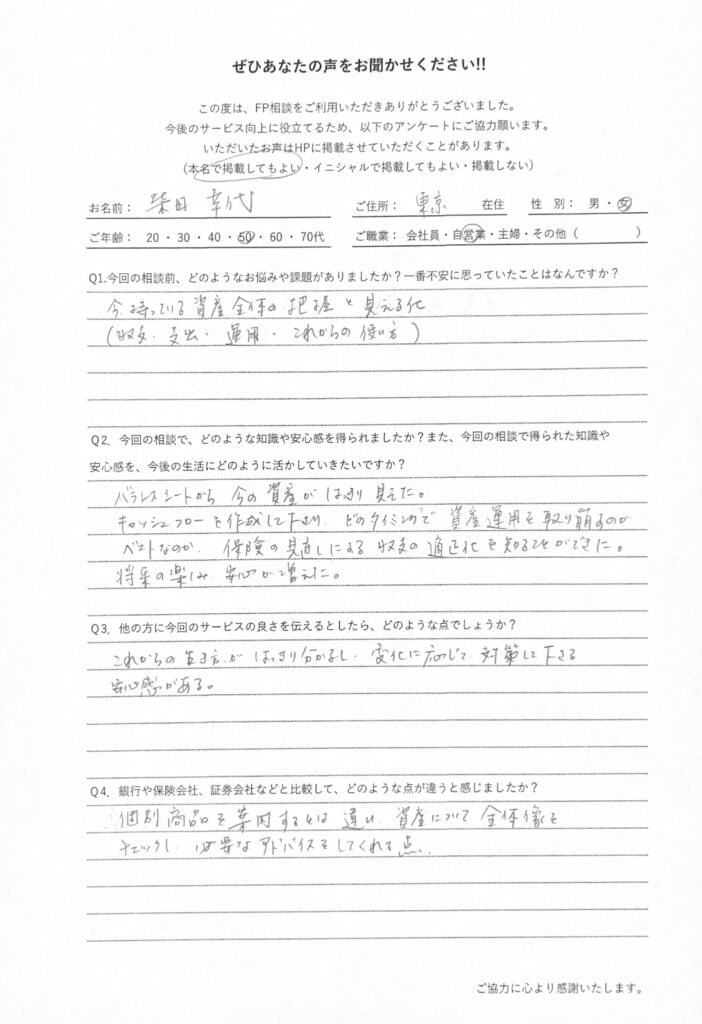 ぜひあなたの声をお聞かせください!!
この度は、FP相談をご利用いただきありがとうございました。
今後のサービス向上に役立てるため、以下のアンケートにご協力願います。
いただいたお声はHPに掲載させていただくことがあります。
(本名で掲載してもよい・イニシャルで掲載してもよい・掲載しない)
お名前： 柴田 幸代 ご住所： 東京 在住 性 別： 男・女
ご年齢：20・30・40・50・60・70代 ご職業：会社員・自営業・主婦・その他（ ）
Q1.今回の相談前、どのようなお悩みや課題がありましたか？一番不安に思っていたことはなんですか？
今、持っている資産全体の把握と見える化
(収支・支出・運用・これからの使い方)
Q2．今回の相談で、どのような知識や安心感を得られましたか？また、今回の相談で得られた知識や
安心感を、今後の生活にどのように活かしていきたいですか？
バランスシートから今の資産がはっきり見えた。
キャッシュフローを作成して下さり、どのタイミングで資産運用を取り崩すのが
ベストなのか、保険の見直しによる収支の適正化を知ることができた。
将来の楽しみ、安心が増えた。
Q3．他の方に今回のサービスの良さを伝えるとしたら、どのような点でしょうか？
これからの生き方がはっきり分かるし、変化に応じて対策して下さる
安心感がある。
Q4．銀行や保険会社、証券会社などと比較して、どのような点が違うと感じましたか？
個別商品を案内するとは違い、資産について全体像を
チェックし、必要なアドバイスをしてくれる点。
ご協力に心より感謝いたします。